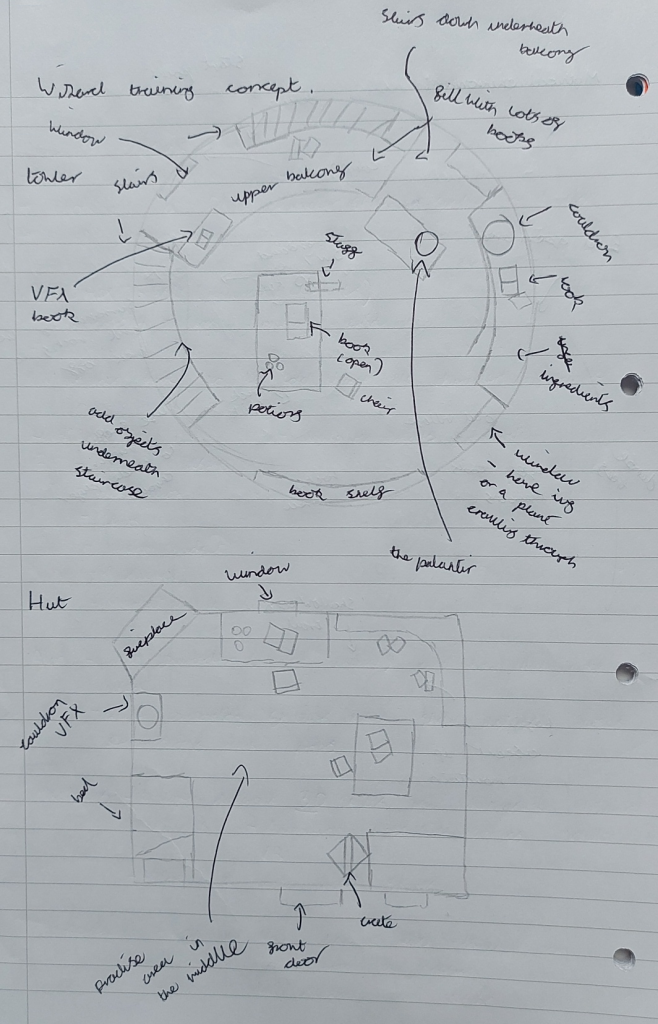 Stairs down underneath
balcony
Wizard training concept.
window
fill with lots of
books
tower
stairs
upper balcony
cauldron
staff
VFX
book
book
book
(open)
ingredients
chair
potions
add objects
underneath
staircase
window
- have ivy
or a plant
crawling through
book shelf
the palantir
window
Hut
fireplace
cauldron
VFX
bed
crate
front
door
practise
area is
the middle